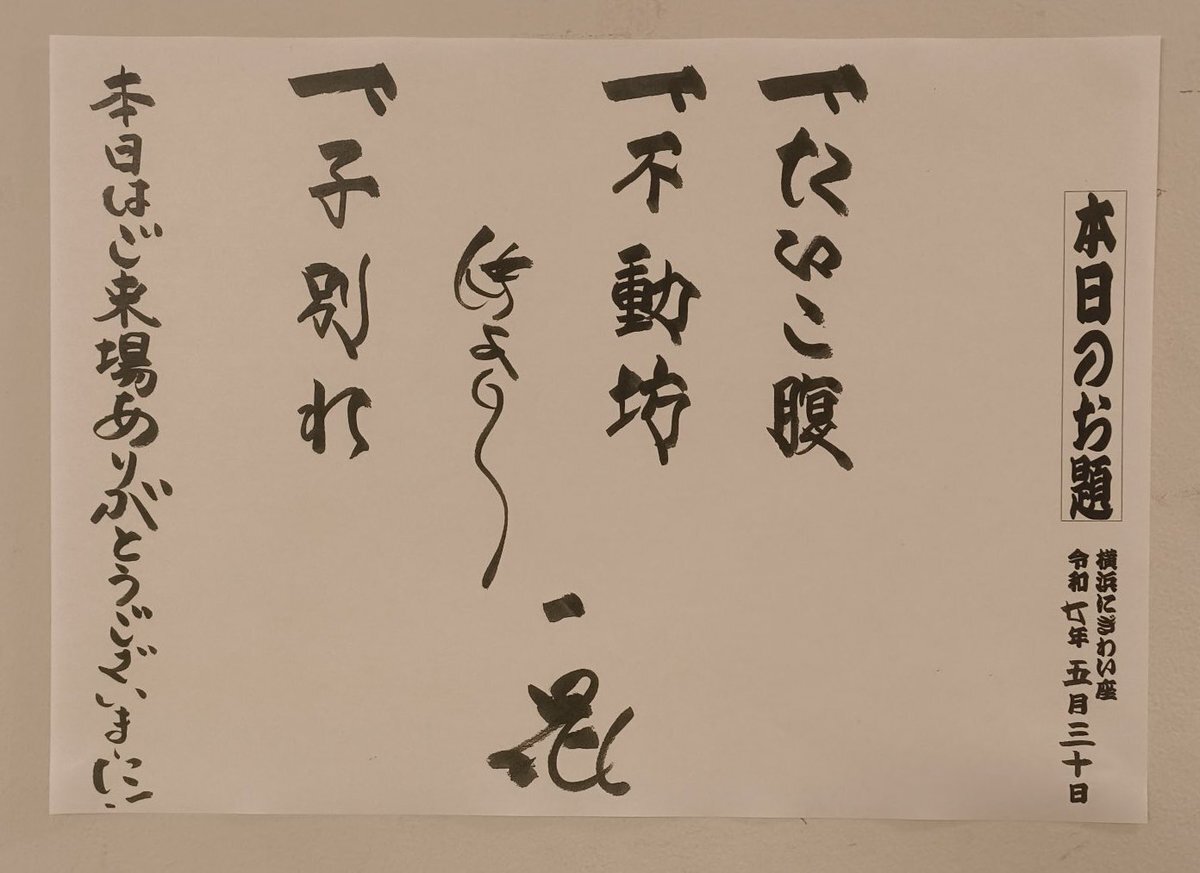 本日のお題
横浜にぎわい座
令和七年五月三十日
一、たいこ腹
一、不動坊
一、子別れ
本日はご来場ありがとうございました